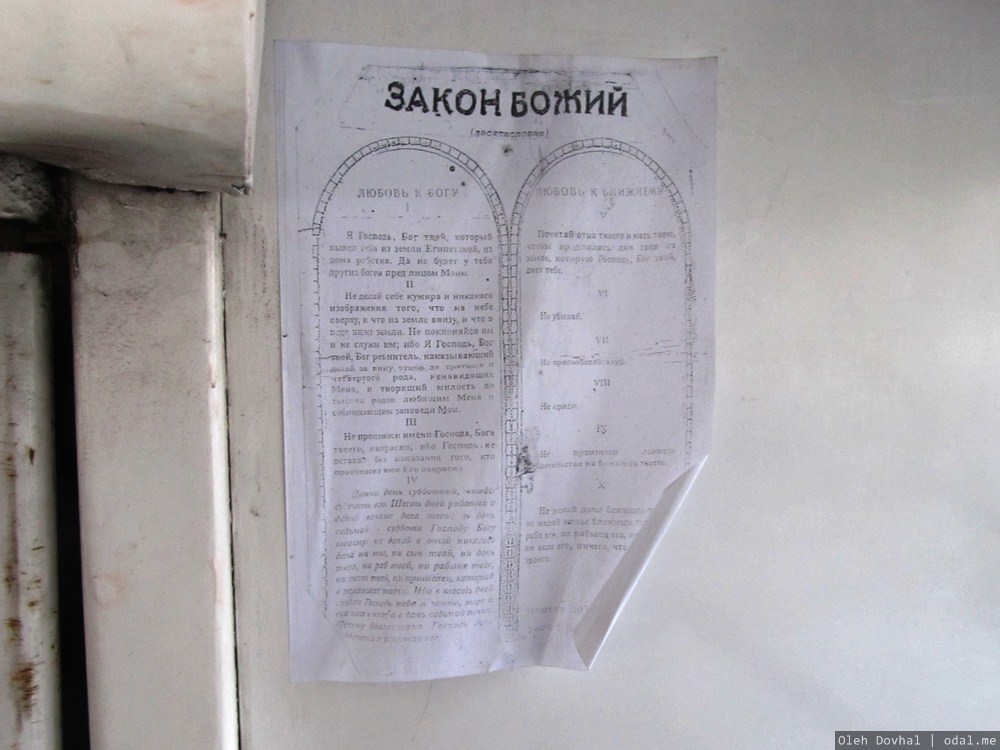 ЗАКОН БОЖИЙ
(десятисловие)
ЛЮБОВЬ К БОГУ
I
Я Господь, Бог твой, который
вывел тебя из земли Египетской, из
дома рабства. Да не будет у тебя
других богов пред лицом Моим.
II
Не делай себе кумира и никакого
изображения того, что на небе
вверху, и что на земле внизу, и что в
воде ниже земли. Не поклоняйся им
и не служи им; ибо Я Господь, Бог
твой, Бог ревнитель, наказывающий
детей за вину отцов до третьего и
четвертого рода, ненавидящих
Меня, и творящий милость до
тысячи родов любящим Меня и
соблюдающим заповеди Мои.
III
Не произноси имени Господа, Бога
твоего, напрасно; ибо Господь не
оставит без наказания того, кто
произносит имя Его напрасно.
IV
день субботний, чтобы
святить его. Шесть дней работай и
делай всякие дела твои; а день
седьмый - суббота Господу Богу
твоему: не делай в оный никакого
дела ни ты, ни сын твой, ни дочь
твоя, ни раб твой, ни рабыня твоя,
ни скот твой, ни пришелец, который
в жилищах твоих. Ибо в шесть дней
создал Господь небо и землю, море и
все что в них; а в день седьмой
Посему Господь день
ЛЮБОВЬ К БЛИЖНЕМУ
V
Почитай отца твоего и мать твою,
чтобы продлились дни твои на
земле, которую Господь, Бог твой,
дает тебе.
VI
Не убивай.
VII
Не прелюбодействуй.
VIII
Не кради.
IX
Не произноси ложного
свидетельства на ближнего твоего.
X
Не желай дома ближнего
не желай жены ближнего
ни рабыни его,
ни осла его, ничего, что
Oleh Dovhal | odal.me